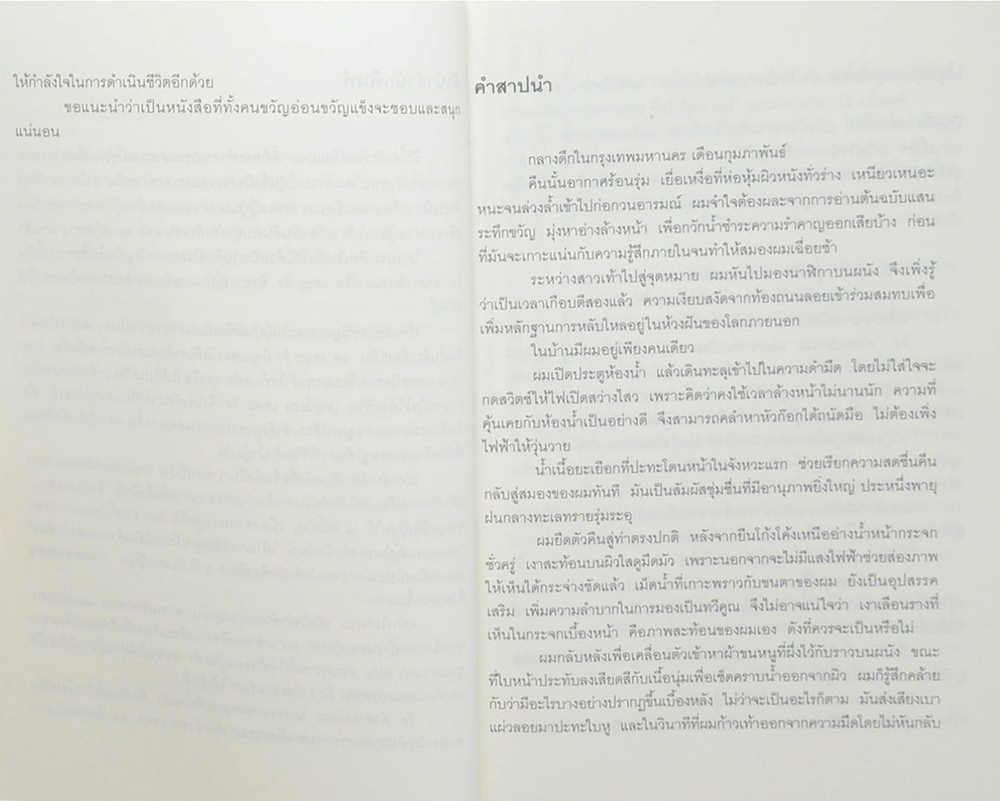 ให้กำลังใจในการดำเนินชีวิตอีกด้วย
ขอแนะนำว่าเป็นหนังสือที่ทั้งคนขวัญอ่อนขวัญแข็งจะชอบและสนุก
แน่นอน
คำสาปนำ
กลางดึกในกรุงเทพมหานคร เดือนกุมภาพันธ์
คืนนั้นอากาศร้อนรุ่ม เยื่อเหงื่อที่ห่อหุ้มผิวหนังทั่วร่าง เหนียวเหนอะ
หนะจนล่วงล้ำเข้าไปก่อกวนอารมณ์ ผมจำใจต้องผละจากการอ่านต้นฉบับแสน
ระทึกขวัญ มุ่งหาอ่างล้างหน้า เพื่อกวักน้ำชำระความรำคาญออกเสียบ้าง ก่อน
ที่มันจะเกาะแน่นกับความรู้สึกภายในจนทำให้สมองผมเฉื่อยช้า
ระหว่างสาวเท้าไปสู่จุดหมาย ผมหันไปมองนาฬิกาบนผนัง จึงเพิ่งรู้
ว่าเป็นเวลาเกือบตีสองแล้ว ความเงียบสงัดจากท้องถนนลอยเข้าร่วมสมทบเพื่อ
เพิ่มหลักฐานการหลับใหลอยู่ในห้วงฝันของโลกภายนอก
ในบ้านมีผมอยู่เพียงคนเดียว
ผมเปิดประตูห้องน้ำ แล้วเดินทะลุเข้าไปในความดำมืด โดยไม่ใส่ใจจะ
กดสวิตช์ให้ไฟเปิดสว่างไสว เพราะคิดว่าคงใช้เวลาล้างหน้าไม่นานนัก ความที่
คุ้นเคยกับห้องน้ำเป็นอย่างดี จึงสามารถคลำหาหัวก๊อกได้ถนัดมือ ไม่ต้องเพิ่ง
ไฟฟ้าให้วุ่นวาย
น้ำเนื้อยะเยือกที่ปะทะโดนหน้าในจังหวะแรก ช่วยเรียกความสดชื่นคืน
กลับสู่สมองของผมทันที มันเป็นสัมผัสชุ่มชื่นที่มีอานุภาพยิ่งใหญ่ ประหนึ่งพายุ
ฝนกลางทะเลทรายรุ่มระอุ
ผมยืดตัวคืนสู่ท่าตรงปกติ หลังจากยืนโก้งโค้งเหนืออ่างน้ำหน้ากระจก
ชั่วครู่ เงาสะท้อนบนผิวใสดูมืดมัว เพราะนอกจากจะไม่มีแสงไฟฟ้าช่วยส่องภาพ
ให้เห็นได้กระจ่างชัดแล้ว เม็ดน้ำที่เกาะพราวกับขนตาของผม ยังเป็นอุปสรรค
เสริม เพิ่มความลำบากในการมองเป็นทวีคูณ จึงไม่อาจแน่ใจว่า เงาเลือนรางที่
เห็นในกระจกเบื้องหน้า คือภาพสะท้อนของผมเอง ดังที่ควรจะเป็นหรือไม่
ผมกลับหลังเพื่อเคลื่อนตัวเข้าหาผ้าขนหนูที่ผึ่งไว้กับราวบนผนัง ขณะ
ที่ใบหน้าประทับลงเสียดสีกับเนื้อนุ่มเพื่อเช็ดคราบน้ำออกจากผิว ผมก็รู้สึกคล้าย
กับว่ามีอะไรบางอย่างปรากฏขึ้นเบื้องหลัง ไม่ว่าจะเป็นอะไรก็ตาม มันส่งเสียงเบา
แผ่วลอยมาปะทะใบหู และในวินาทีที่ผมก้าวเท้าออกจากความมืดโดยไม่หันกลับ